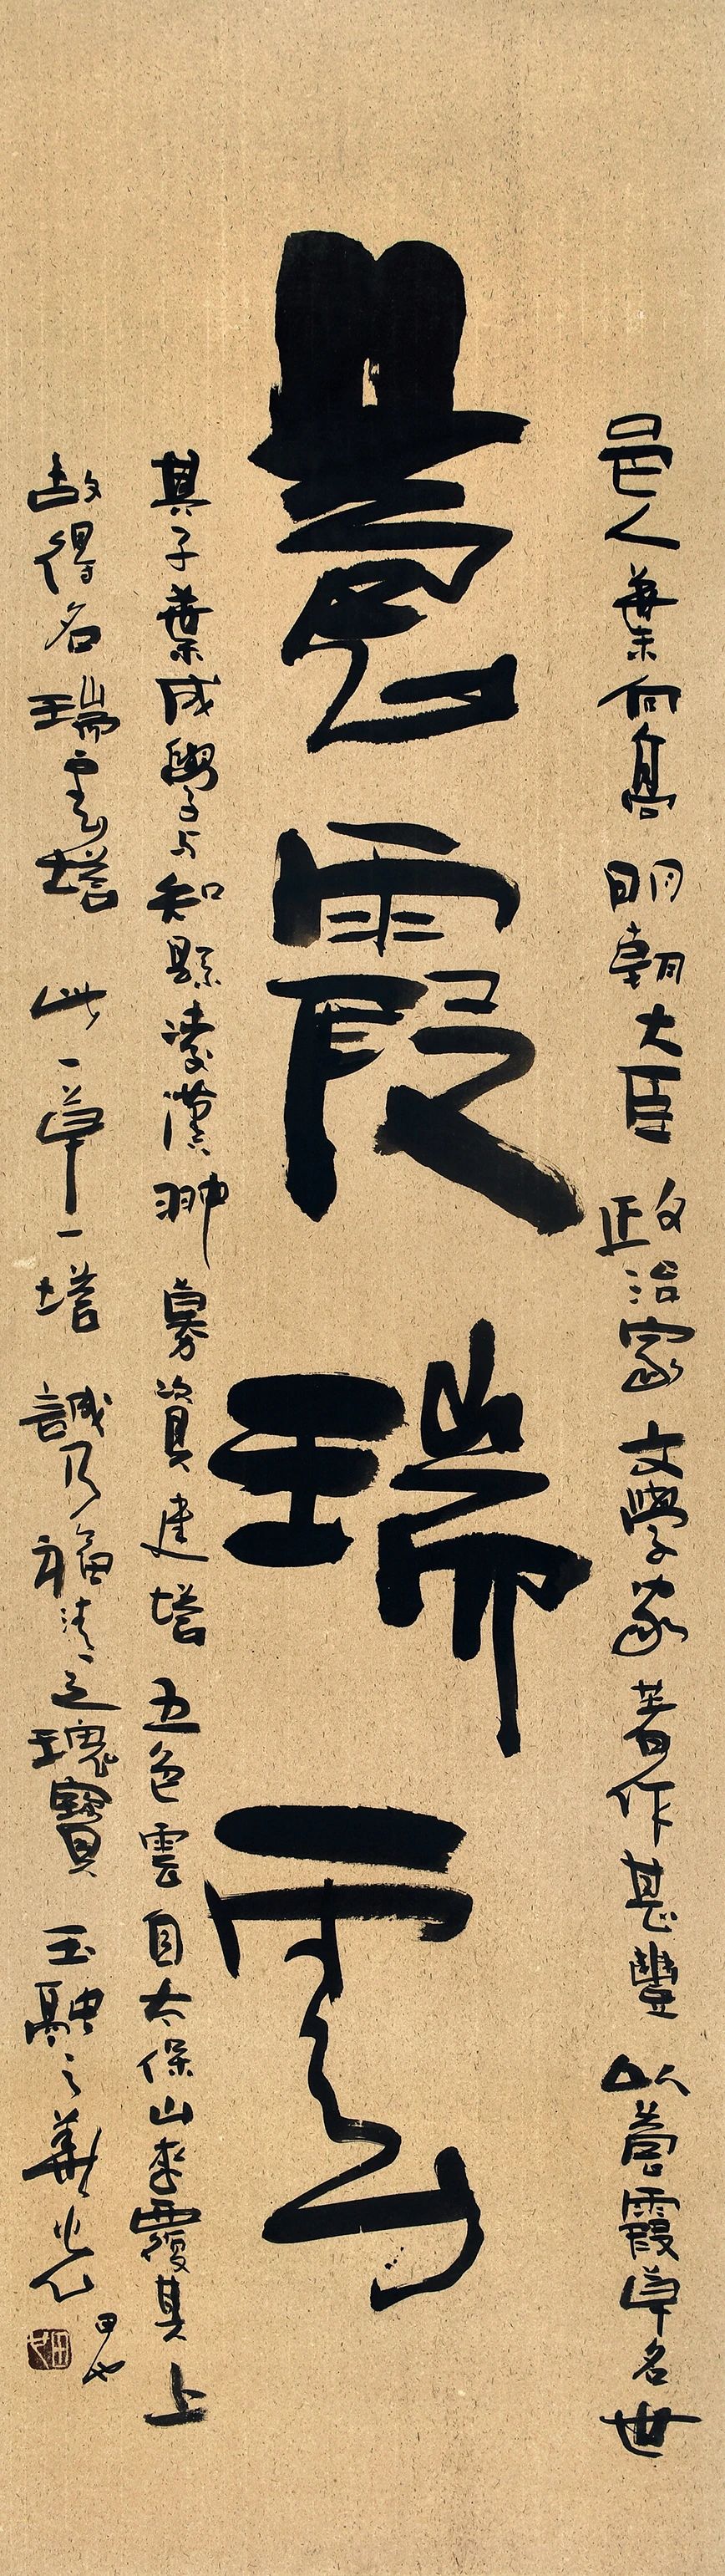 邑人葉向高 明朝大臣 政治家 文學家 著作甚豐 以蒼霞草名世
蒼霞瑞雲
其子葉成學与知縣凌漢翀 募資建塔 五色雲自太保山來覆其上
故得名瑞雲塔 此一草一塔 誠乃福清之瑰寶 玉融之華光也
田也